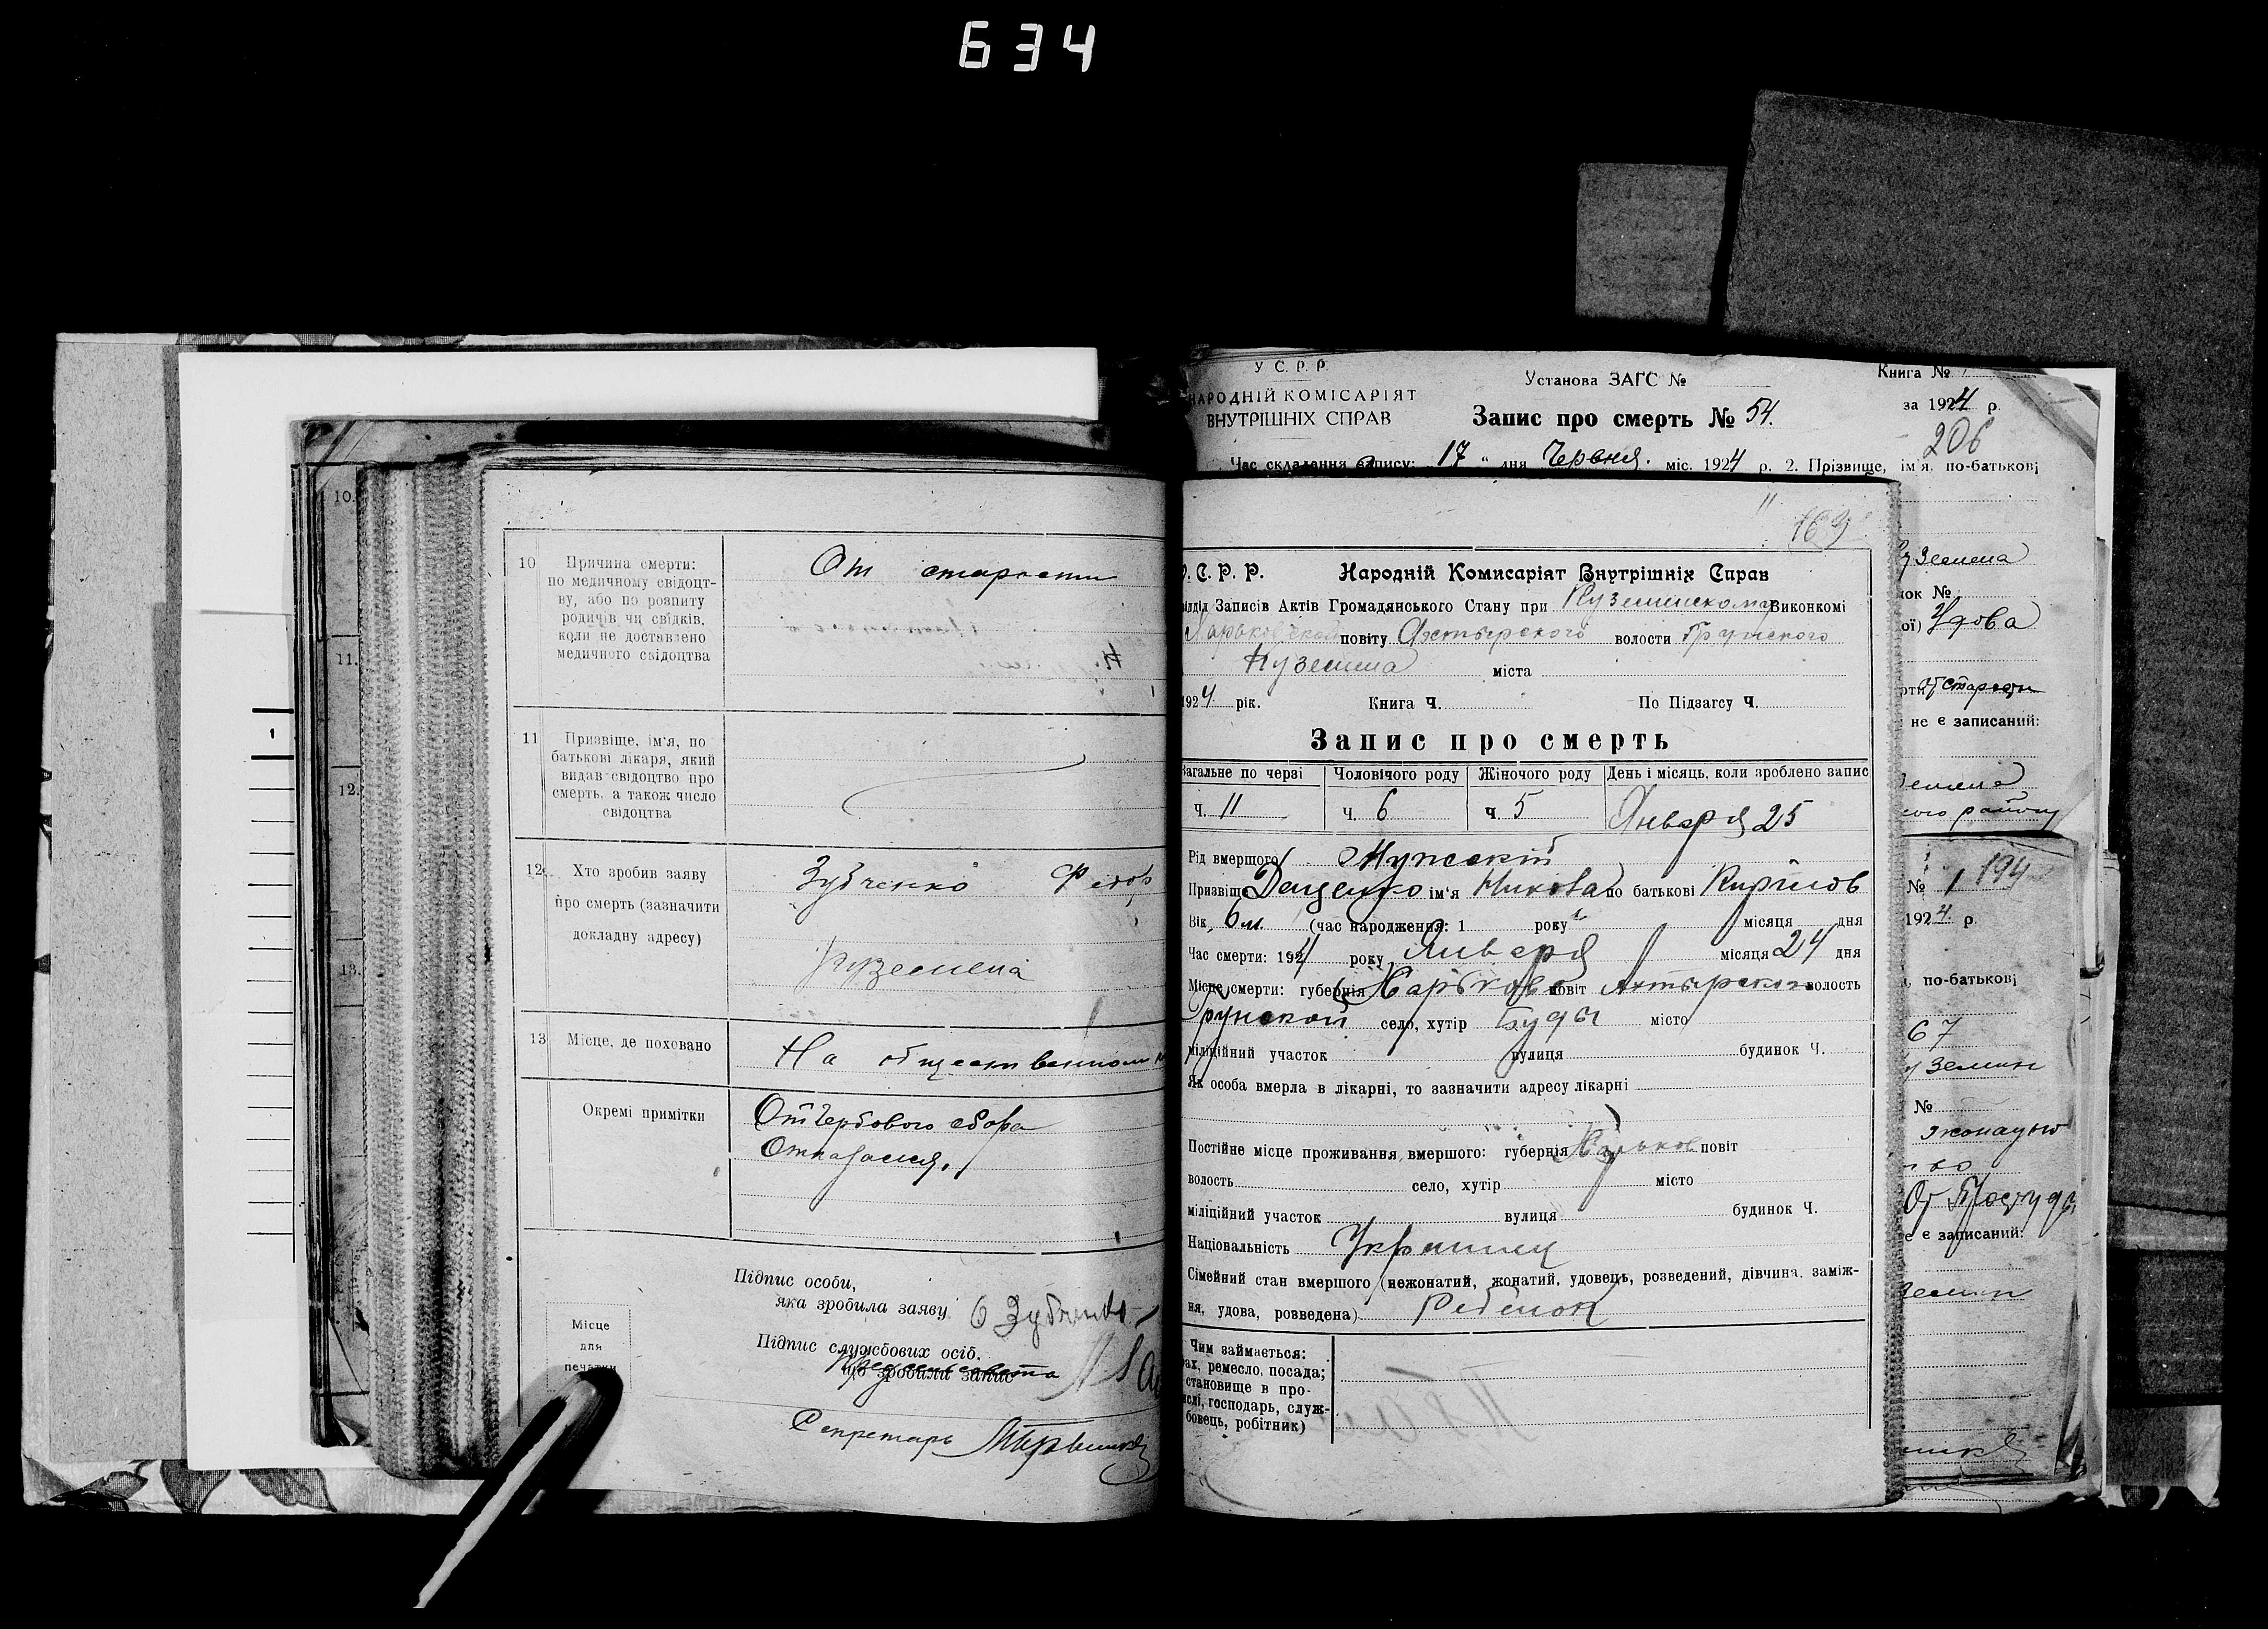 634
10.
11.
12.
13.
10 Причина смерти:
по медичному свідоцт-
ву, або по розпиту
родичів чи свідків,
коли не доставлено
медичного свідоцтва
От старости
11 Призвіще, ім'я, по
батькові лікаря, який
видав свідоцтво про
смерть, а також число
свідоцтва
12 Хто зробив заяву
про смерть (зазначити
докладну адресу)
Зубченко Федор
Куземена
13 Місце, де поховано
На общественном
Окремі примітки
От гербового сбора
Підпис особи,
яка зробила заяву Зубченко
Підпис службових осіб,
що зробили запис
Місце
для
печатки
Секретарь
У С. Р. Р.
НАРОДНІЙ КОМІСАРІЯТ
ВНУТРІШНІХ СПРАВ
Установа ЗАГС №
Запис про смерть № 54.
Книга №
за 1924 р.
206
Час складання запису: 17 " дня Червня. міс. 1924 р. 2. Прізвище, ім'я, по-батькові
169
У. С. Р. Р. Народній Комисаріят Внутрішніх Справ
Відділ Записів Актів Громадянського Стану при Куземинскому Виконкомі
Харьковской повіту Ахтырского волости Грунского
Куземена міста
1924 рік. Книга Ч. По Підзагсу Ч.
Запис про смерть
Загальне по черзі Чоловічого роду Жіночого роду День і місяць, коли зроблено запис
ч. 11 ч. 6 ч. 5 Января 25
Рід вмершого Мужский
Призвіще Деценко ім'я Никола по батькові Кирилов
Вік 6 м. (час народження: 1 року місяця дня
Час смерти: 1924 року Января місяця 24 дня
Місце смерти: губернія Харьков повіт Ахтырского волость
Грунской село, хутір Буды місто
міліційний участок вулиця будинок Ч.
Як особа вмерла в лікарні, то зазначити адресу лікарні
Постійне місце проживання вмершого: губернія Харьков повіт
волость село, хутір місто
міліційний участок вулиця будинок Ч.
Національність Украинец
Сімейний стан вмершого (нежонатий, жонатий, удовець, розведений, дівчина, заміж-
ня, удова, розведена) Ребенок
Чим займається:
фах, ремесло, посада;
становище в про-
мислі, господарь, служ-
бовець, робітник)
уземена
нок №
ої) Удова
рти от старости
не є записаний:
земена
ого району
№ 1 194
1924 р.
, по-батькові
67
уземин
№
От Простуды
е є записаний:
земин